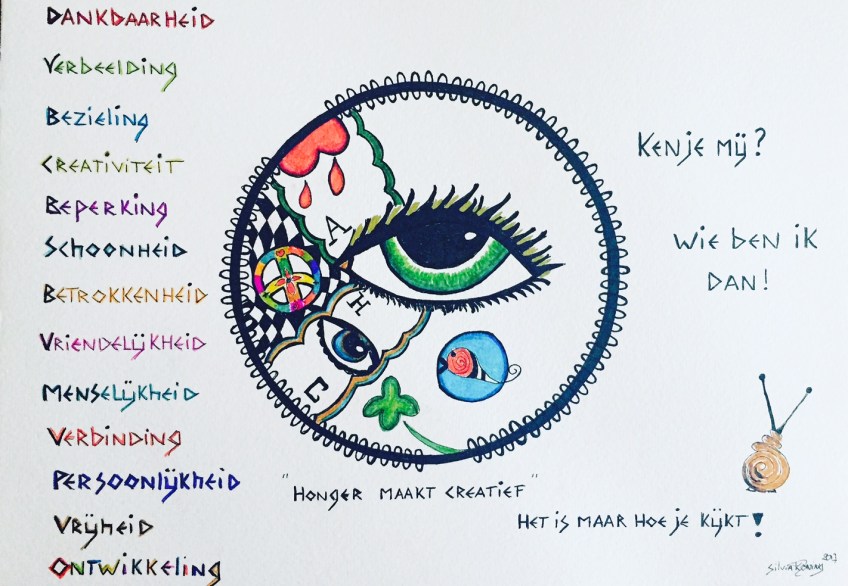 DANKBAARHEID
VERBEELDING
BEZIELING
CREATIVITEIT
BEPERKING
SCHOONHEID
BETROKKENHEID
VRIENDELIJKHEID
MENSELIJKHEID
VERBINDING
PERSOONLIJKHEID
VRIJHEID
ONTWIKKELING
A
H
C
"HONGER MAAKT CREATIEF"
KEN JE MIJ?
WIE BEN IK
DAN!
HET IS MAAR HOE JE KIJKT!
Silvia